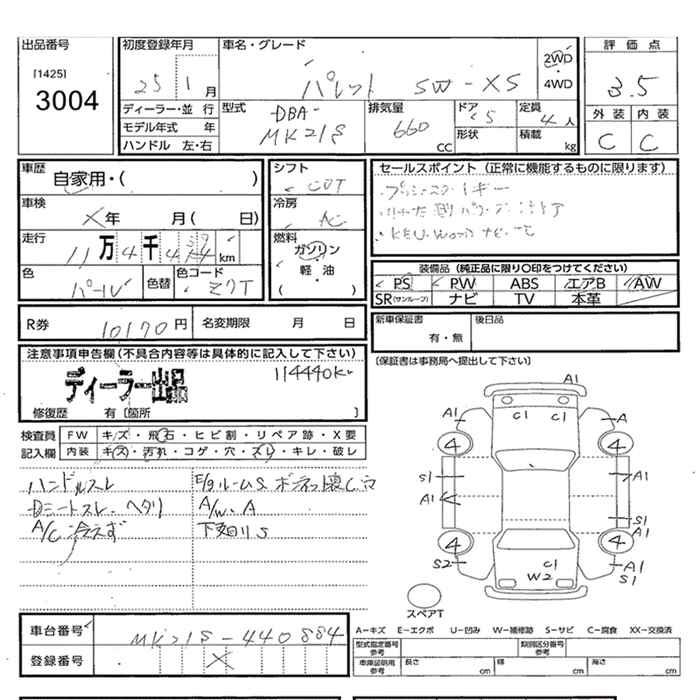 出品番号
[1425]
3004
初度登録年月
25 1 月
ディーラー・並 行
モデル年式 年
ハンドル 左・右
車名・グレード
パレット SW-XS
2WD
4WD
型式
DBA-
MK21S
排気量
660
CC
ドア
5
形状
定員
4 人
積載
kg
評 価 点
3.5
外 装 内 装
C C
車歴
自家用・( )
車検
× 年 月( 日)
走行
11 万 4 千 km
色
パール
色替
色コード
Z7T
シフト
CVT
冷房
AC
燃料
ガソリン
軽 油
( )
セールスポイント (正常に機能するものに限ります)
・プッシュスタート・キー
・KENWOODナビ・
装備品 (純正品に限り〇印をつけてください)
PS PW ABS エアB AW
SR(サンルーフ) ナビ TV 本革
R券 10170 円
名変期限 月 日
新車保証書
有・無
後日品
(保証書は事務局へ提出して下さい)
注意事項申告欄(不具合内容等は具体的に記入して下さい)
ディーラー出品
114440K
修復歴 有 〔箇所 〕
検査員
記入欄
FW キズ・飛石・ヒビ割・リペア跡・X要
内装 キズ・汚れ・コゲ・穴・スレ・キレ・破レ
ハンドルスレ
Dシートスレ、ヘタリ
A/C 冷えず
E/gルームS ボンネット裏C、コ
A/W、A
下廻りS
A1
A1 C1 C1 A
4 4
S1 A1
A1
S1
4 4 A1
S2 C1 A1
W2 S1
スペアT
車台番号 MK21S-440884
登録番号 ×
A-キズ E-エクボ U-凹み W-補修跡 S-サビ C-腐食 XX-交換済
型式指定番号
参考
類別区分番号
参考
車庫証明用
参考
長さ cm
幅 cm
高さ cm